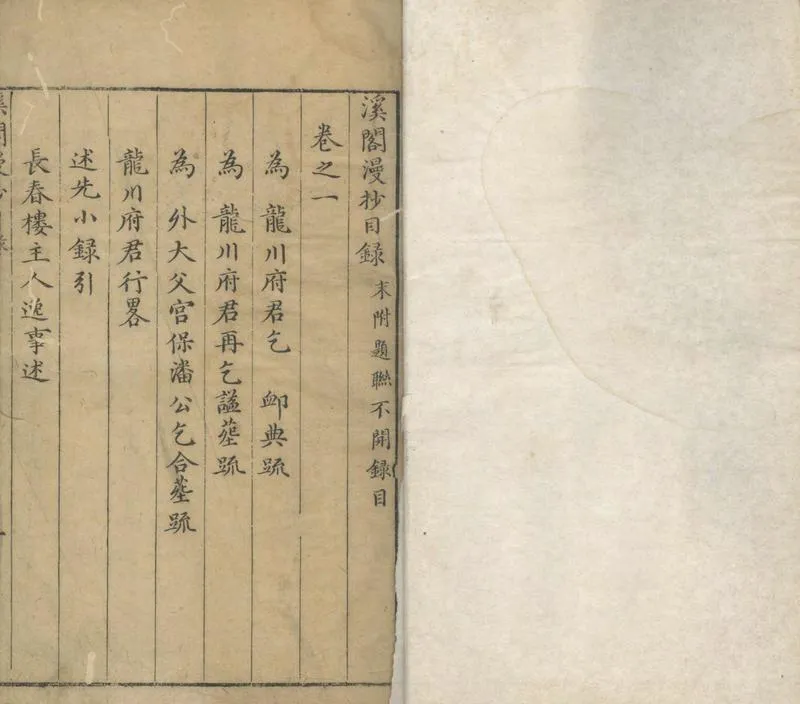 溪閣漫抄目録 末附題聯不開録目
卷之一
為 龍川府君乞 卹典疏
為 龍川府君再乞謚塟疏
為 外大父宫保潘公乞合塟疏
龍川府君行畧
述先小録引
長春樓主人迨事述